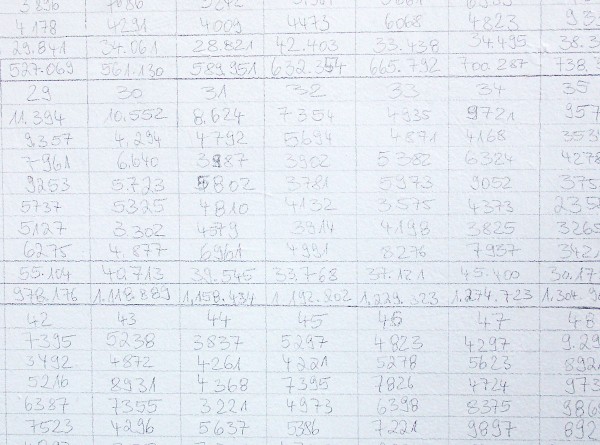 4178 4291 4009 4473 6068 4823
29.841 34.061 28.821 42.403 33.438 34.495 38.3
527.069 561.130 589.951 632.354 665.792 700.287 738.3
29 30 31 32 33 34 35
11.394 10.552 8.624 7354 4935 9721 957
9357 4.294 4792 5694 4871 4168 353
7961 6.640 3987 3902 5382 6324 4278
9253 5.723 5802 3781 5973 9052 375
5737 5325 4810 4132 3.575 4373 235
5127 3.302 4579 3914 4198 3825 3265
6275 4.877 6961 4991 8276 7937 342
55.104 40.713 39.545 33.768 37.121 45.400 30.17
978.176 1.118.889 1.158.434 1.192.202 1.229.323 1.274.723 1.304.9
42 43 44 45 46 47 48
7395 5238 3837 5297 4823 4297 9.29
3492 4872 4261 4221 5278 5623 892
5216 8931 4368 7395 7826 4724 973
6387 7355 3221 4973 6398 8375 986
7523 4296 5637 5386 7221 9897 892